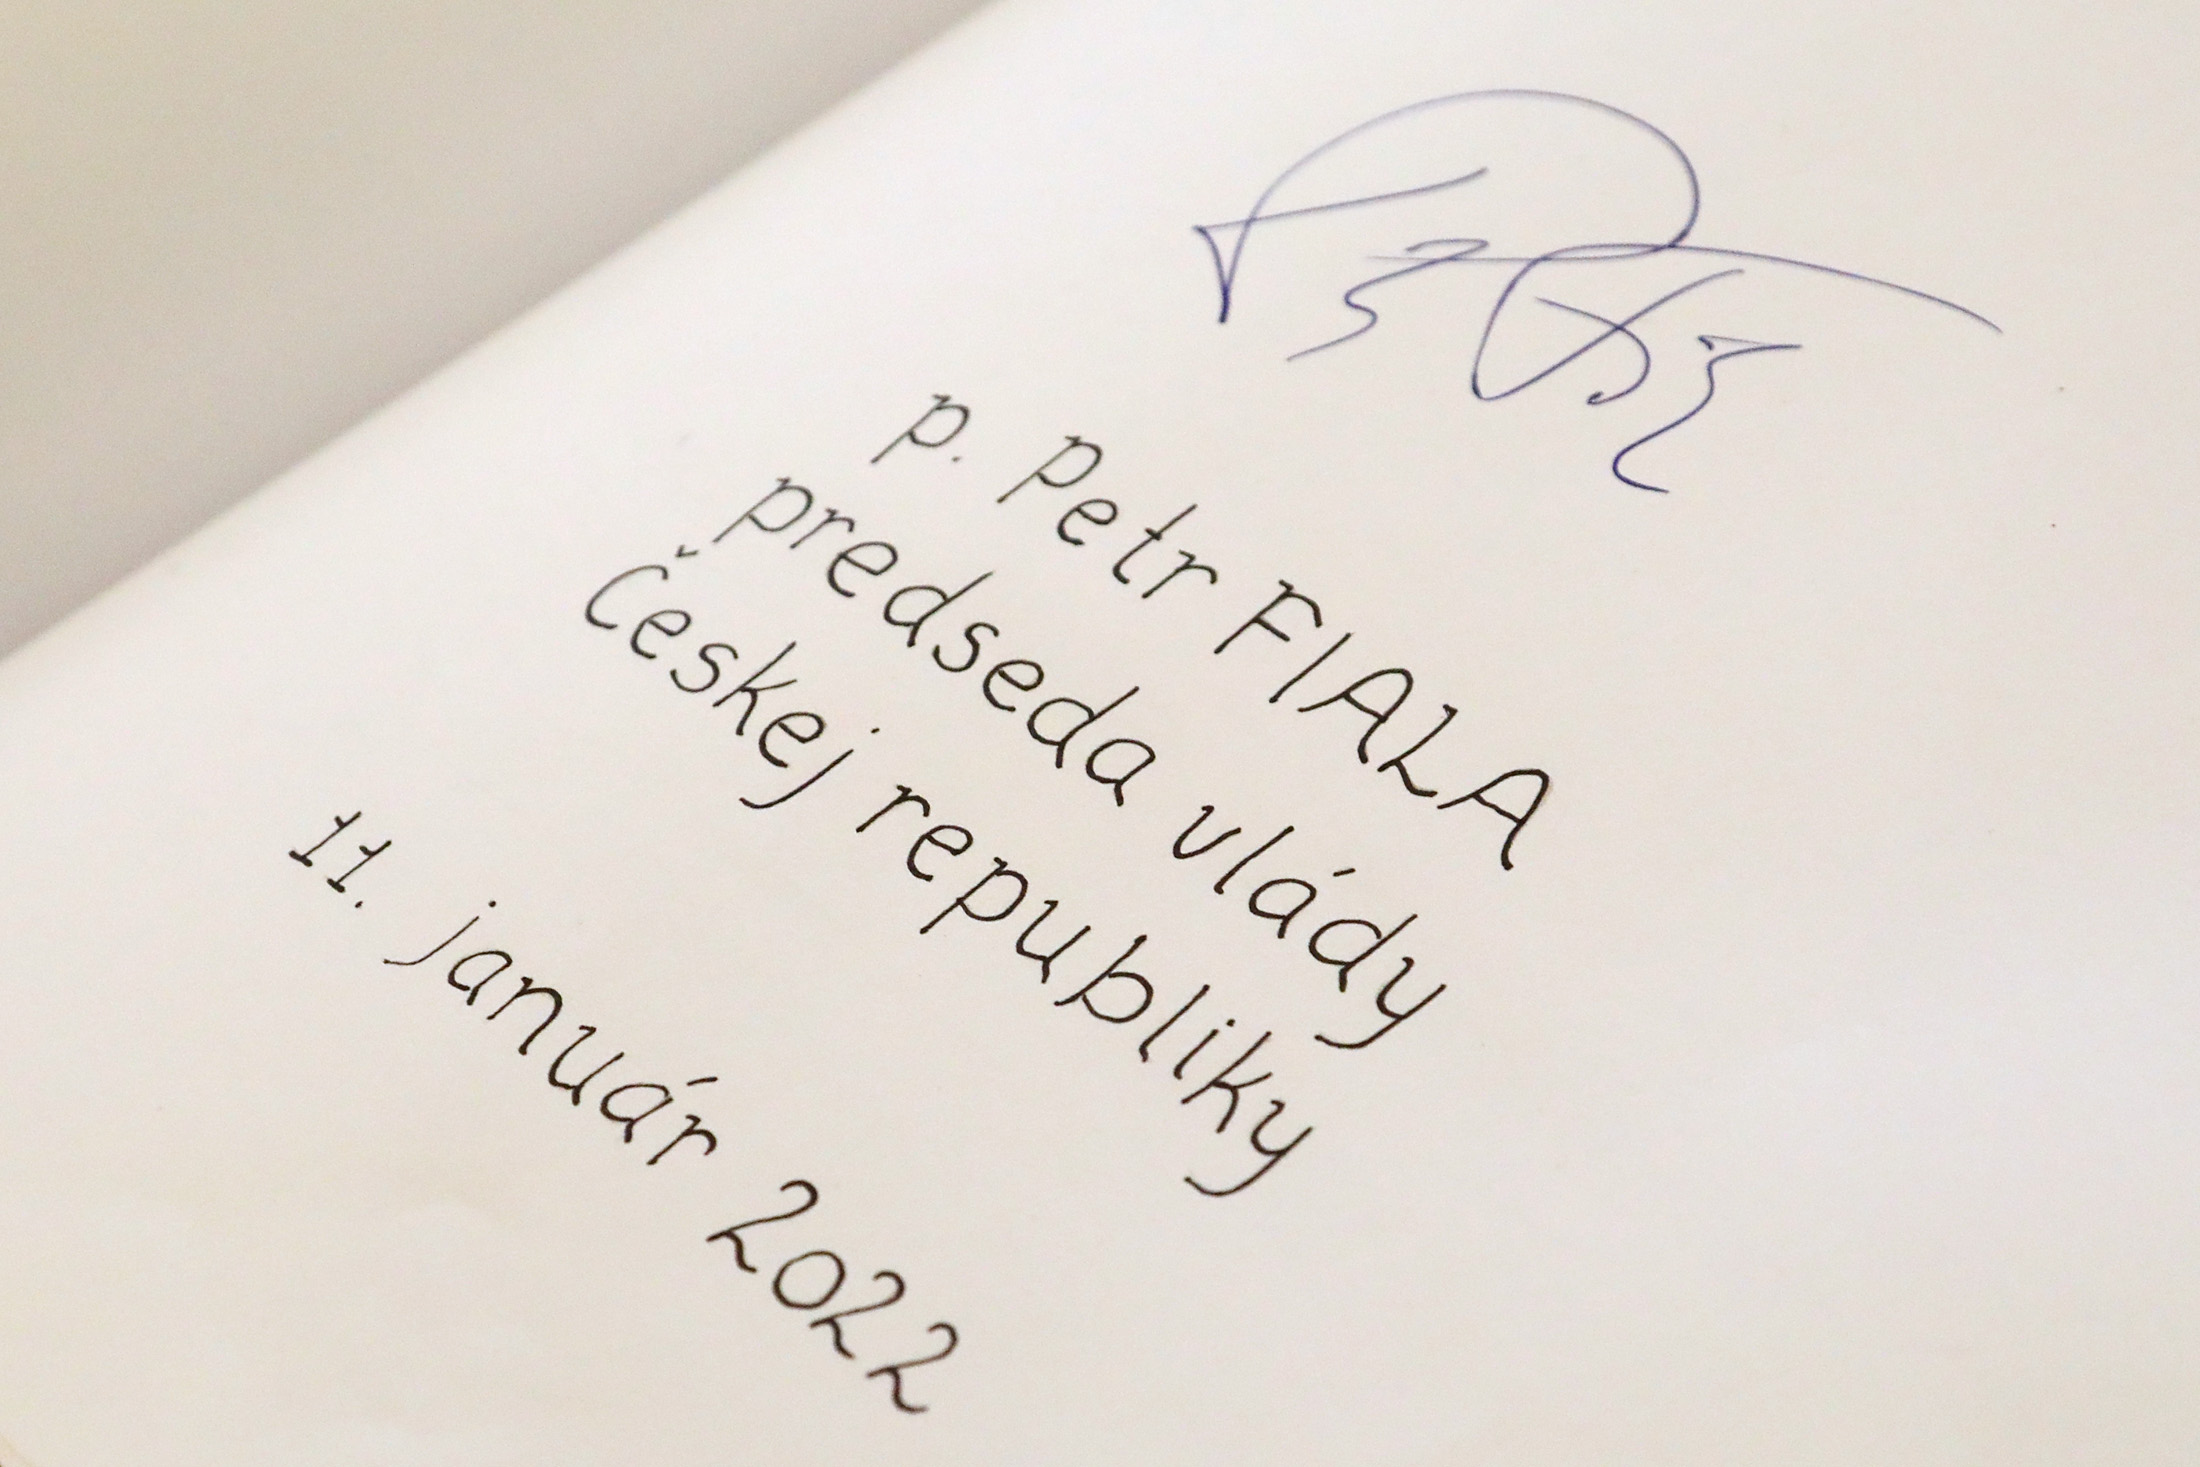 p. Petr FIALA
predseda vlády
Českej republiky
11. január 2022